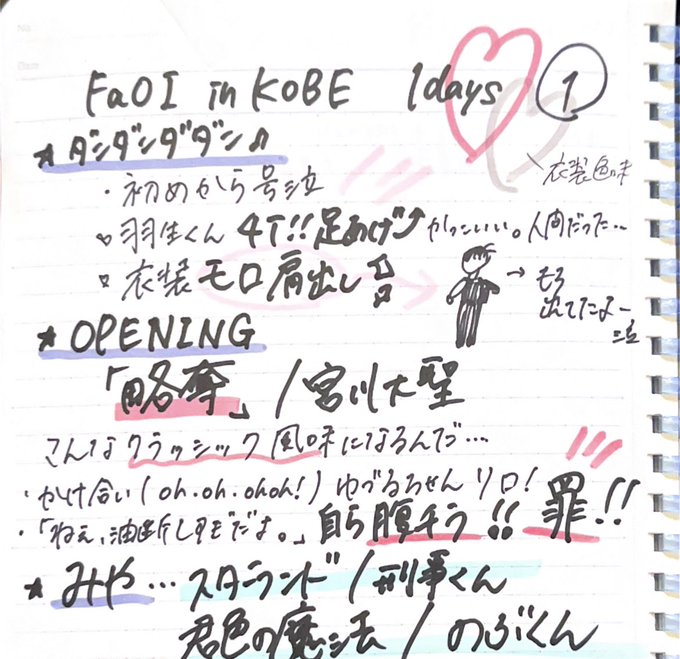 FaOI in KOBE 1days ①
★ ダンダンダダン♫
・初めから号泣
衣装色味
羽生くん 4T!!足あげ かっこいい。人間だった…
衣装 モロ肩出し
→ もろ出てたよー泣
★ OPENING
「略奪」/宮川大聖
こんなクラッシック風味になるんだ…
・かけ合い(oh.oh.ohoh!) ゆづるちゃん リロ!
・「ねぇ、油断しすぎだよ。」 自ら腹チラ!! 罪!!
★ みや… スターランド/刑事くん
君色の魔法/のぶくん